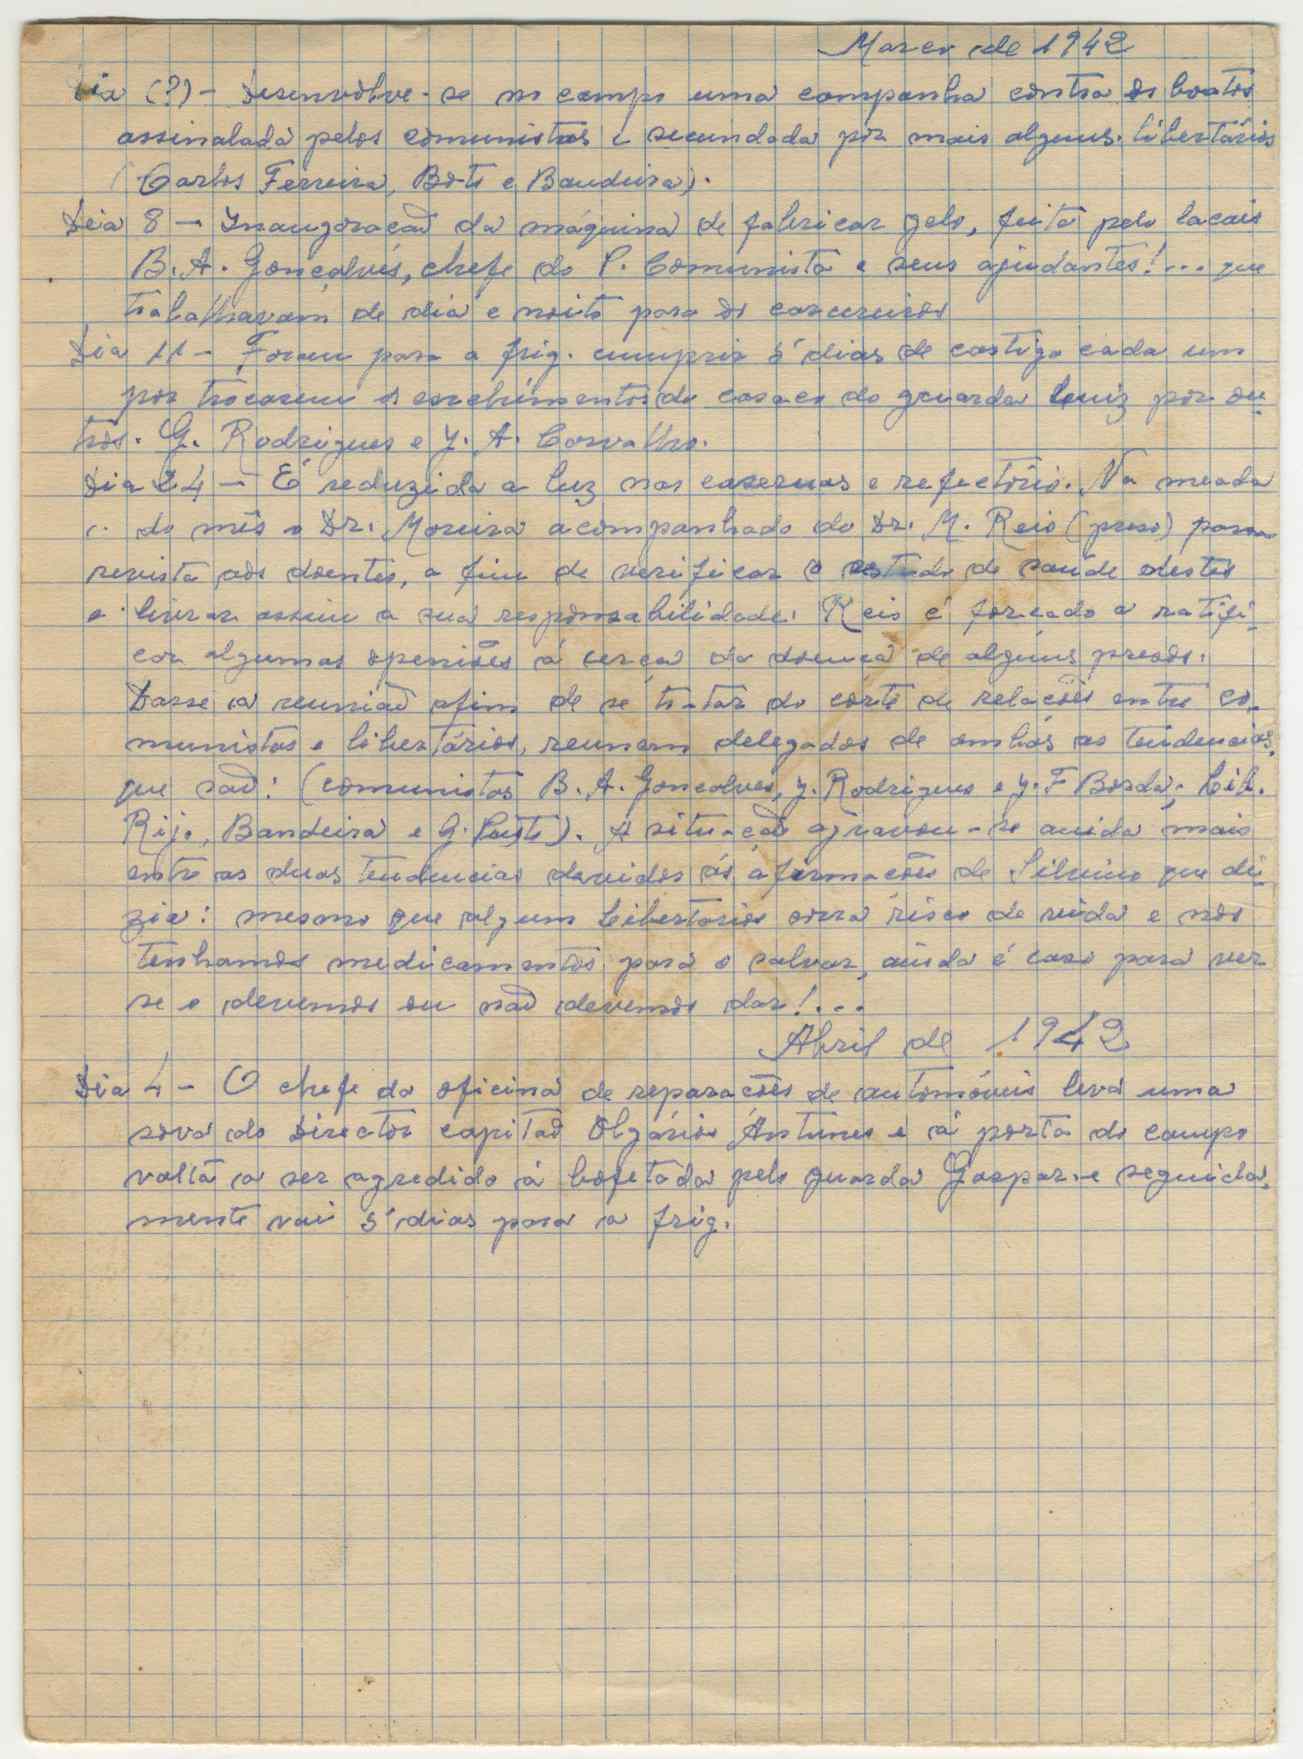 Março de 1942
Dia (?) - Desenvolve-se no campo uma campanha contra os boatos
assinalada pelos comunistas e secundada por mais alguns libertários
(Carlos Ferreira, Boto e Bandeira).
Dia 8 - Inauguração da máquina de fabricar gelo, feita pelo lacais
B. A. Gonçalves, chefe do P. Comunista e seus ajudantes!... que
trabalhavam de dia e noite para os carcereiros
Dia 11 - Foram para a frig. cumprir 5 dias de castigo cada um
por trocarem os enchimentos do casaco do guarda Luiz por ou-
tros. G. Rodrigues e J. A. Carvalho.
Dia 24 - É reduzida a luz nas casernas e refectório. Na meada
do mês o Dr. Moreira acompanhado do Dr. M. Reis (preso) passa
revista aos doentes, a fim de verificar o estado de saúde destes
e livrar assim a sua responsabilidade. Reis é forçado a ratifi-
car algumas openiões á cerca da doença de alguns presos.
Dasse a reunião afim de se tratar do corte de relações entre co-
munistas e libertários, reunem delegados de ambas as tendencias,
que são: (comunistas B. A. Gonçalves, J. Rodrigues e J. F Borda; Lib.
Rijo, Bandeira e G. ). A situação agravou-se ainda mais
entre as duas tendencias devidos ás afirmações de Silvino que di-
zia: mesmo que algum Libertários corra risco de vida e nós
tenhamos medicamentos para o salvar, ainda é caso para ver
se o devemos ou não devemos dar!...
Abril de 1942
Dia 4 - O chefe da oficina de reparações de automóveis leva uma
sova do Director capitão Olgários Antunes e á porta do campo
volta a ser agredido á bofetada pelo guarda Gaspar e seguida-
mente vai 5 dias para a frig.